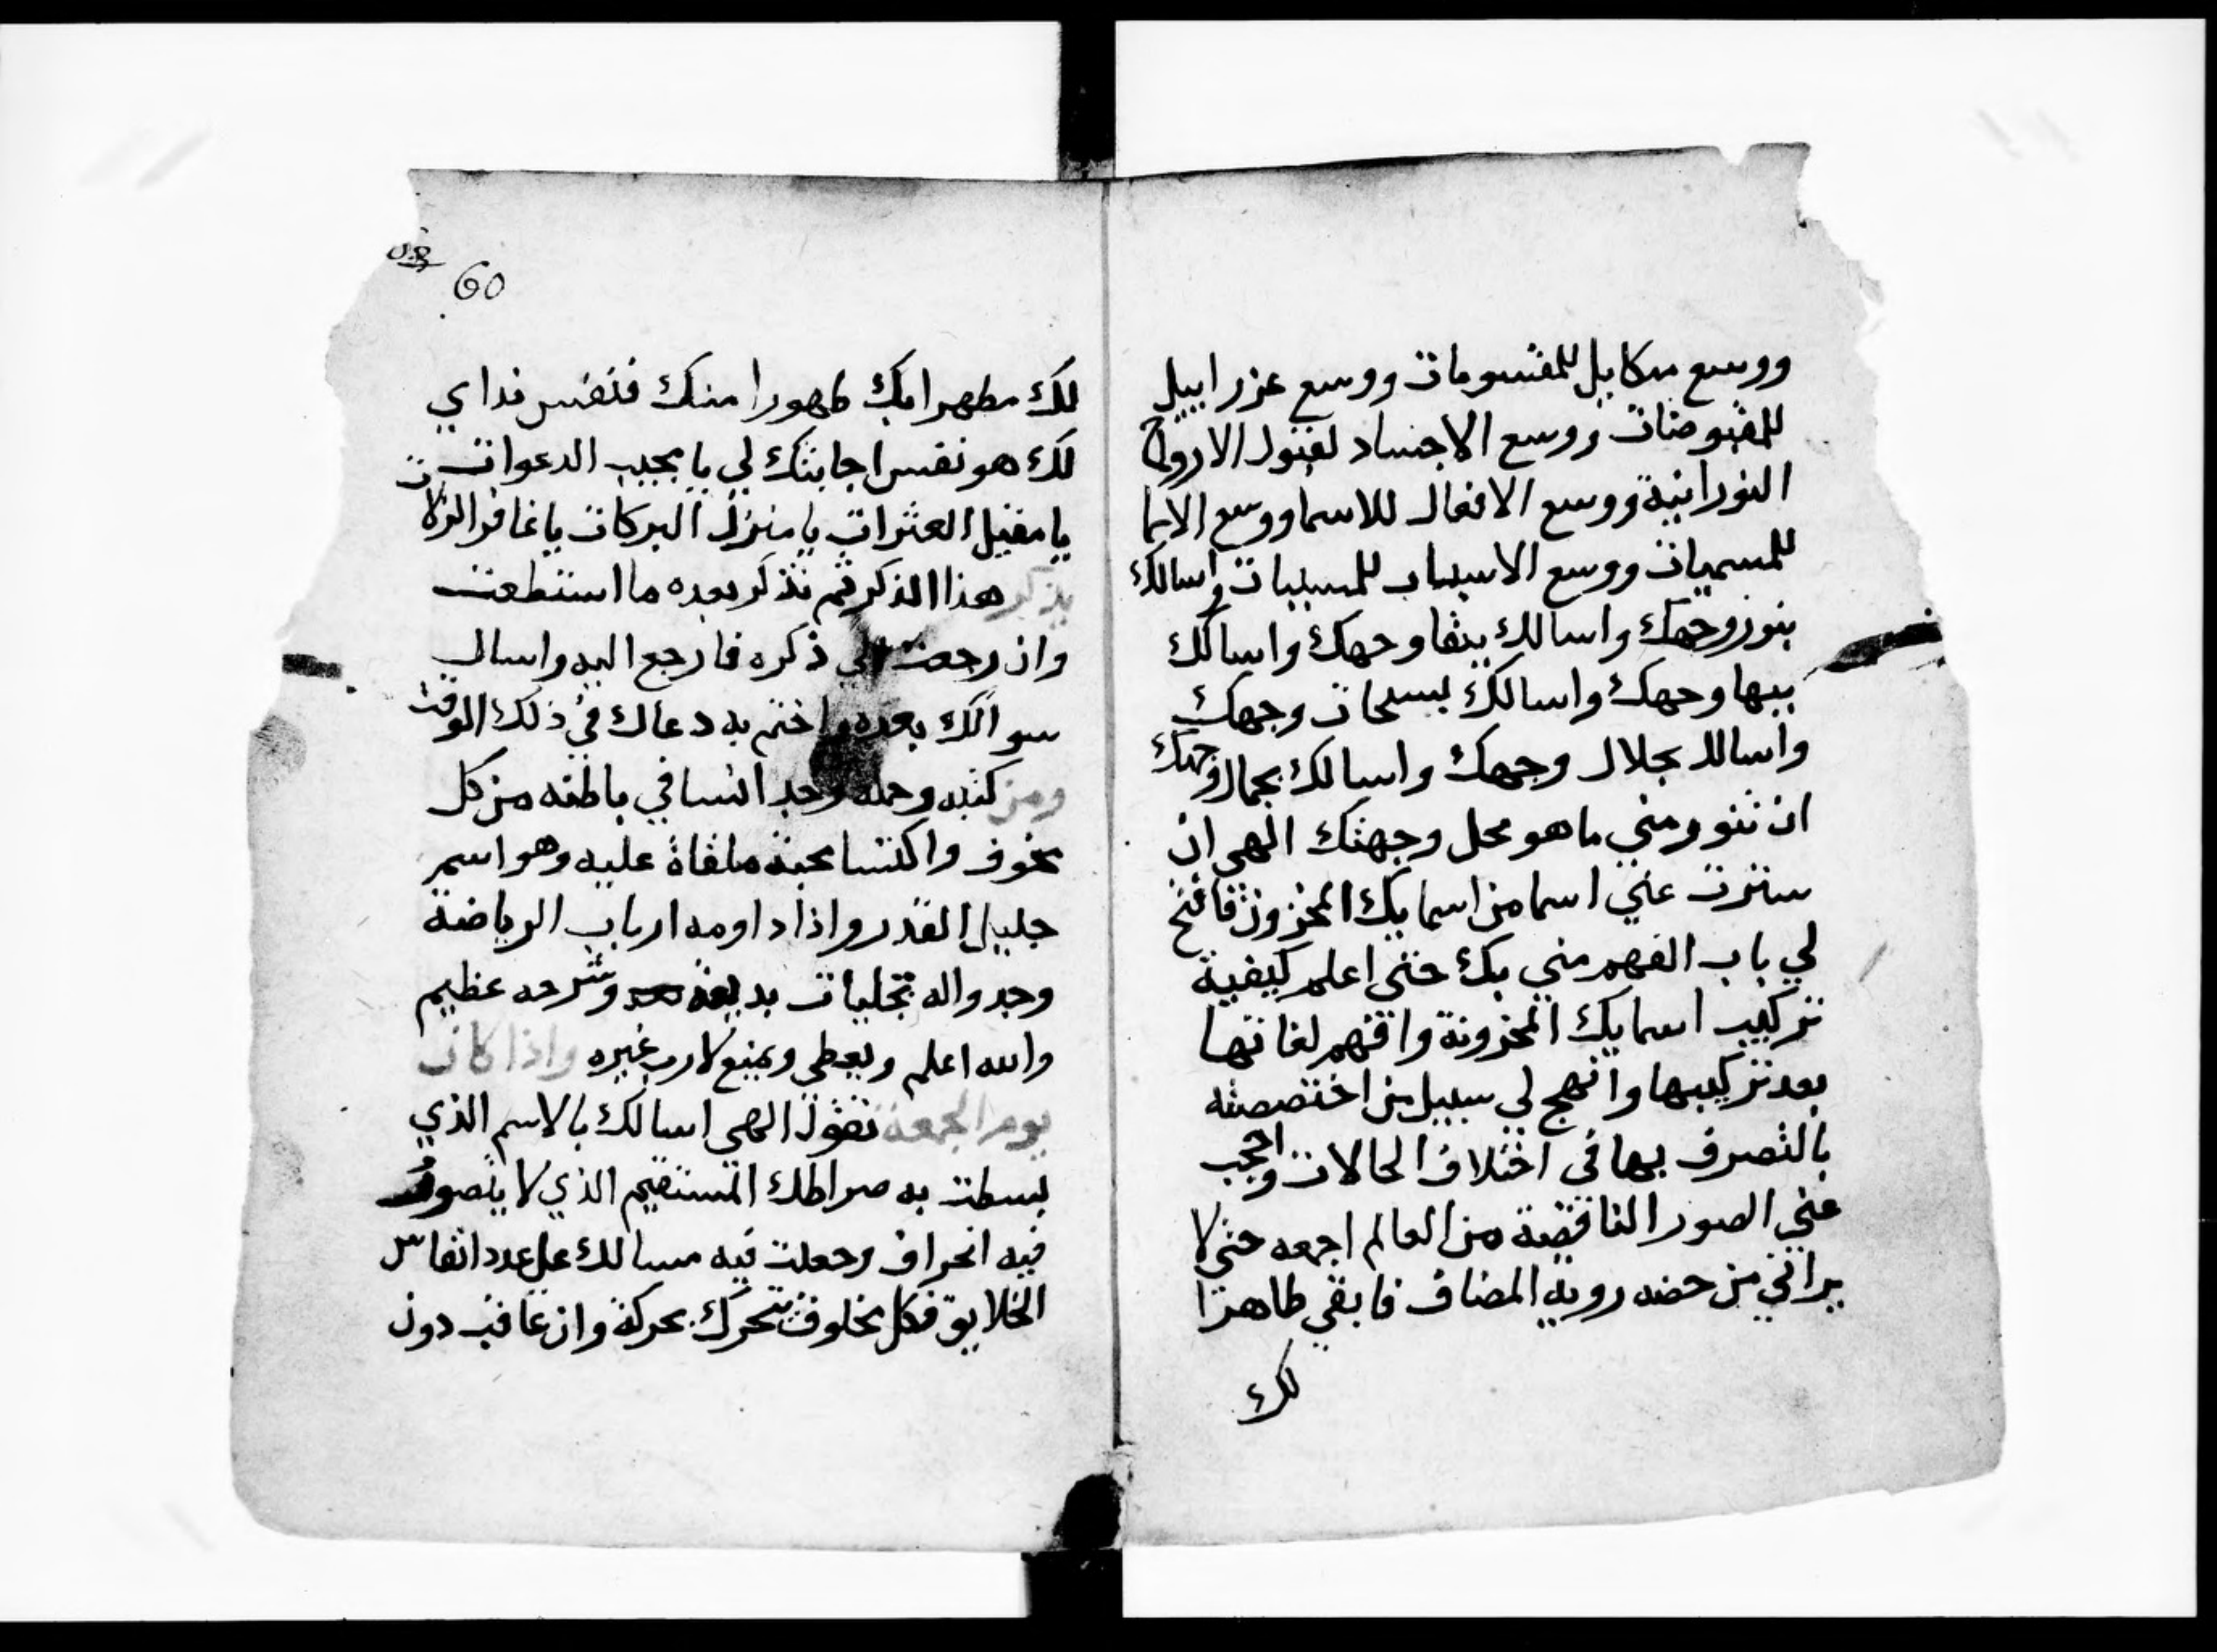 ووسع ميكاييل للمقسومات ووسع عزراييل
للمقبوضات ووسع الاجساد لقبول الارواح
النورانية ووسع الافعال للاسما ووسع الاسما
للمسميات ووسع الاسباب للمسببات واسالك
بنور وجهك واسالك ببقا وجهك واسالك
ببها وجهك واسالك بسبحات وجهك
واسالك بجلال وجهك واسالك بجمال وجهك
ان تنور مني ما هو محل وجهتك الهي ان
سترت عني اسما من اسمايك المخزون فافتح
لي باب الفهم مني بك حتى اعلم كيفية
تركيب اسمايك المخزونة وافهم لغاتها
بعد تركيبها وانهج لي سبيل من اختصصته
بالتصرف بها في اختلاف الحالات واحجب
عني الصور الناقضة من العالم اجمعه حتى لا
يراني من حضه روية المضاف فابقي طاهرا
لك
60
لك مطهرا بك طهورا منك فنفس نداي
لك هو نفس اجابتك لي يا مجيب الدعوات
يا مقيل العثرات يا منزل البركات يا غافر الزلات
يذكر هذا الذكر ثم تذكر بعده ما استطعت
وان رجعت الى ذكره فارجع اليه واسال
سوالك بعده واختم به دعاك في ذلك الوقت
ومن كتبه وحمله وجد انسا في باطنه من كل
مخوف واكتسا محبة ملقاة عليه وهو اسم
جليل القدر واذا داومه ارباب الرياضة
وجدوا له تجليات بديعة وشرحه عظيم
والله اعلم ويعطي ويمنع لا رب غيره واذا كان
يوم الجمعة تقول الهي اسالك بالاسم الذي
بسطت به صراطك المستقيم الذي لا يتصور
فيه انحراف وجعلت فيه مسالك على عدد انفاس
الخلايق فكل مخلوق تحرك بحركة وان عاقب دون